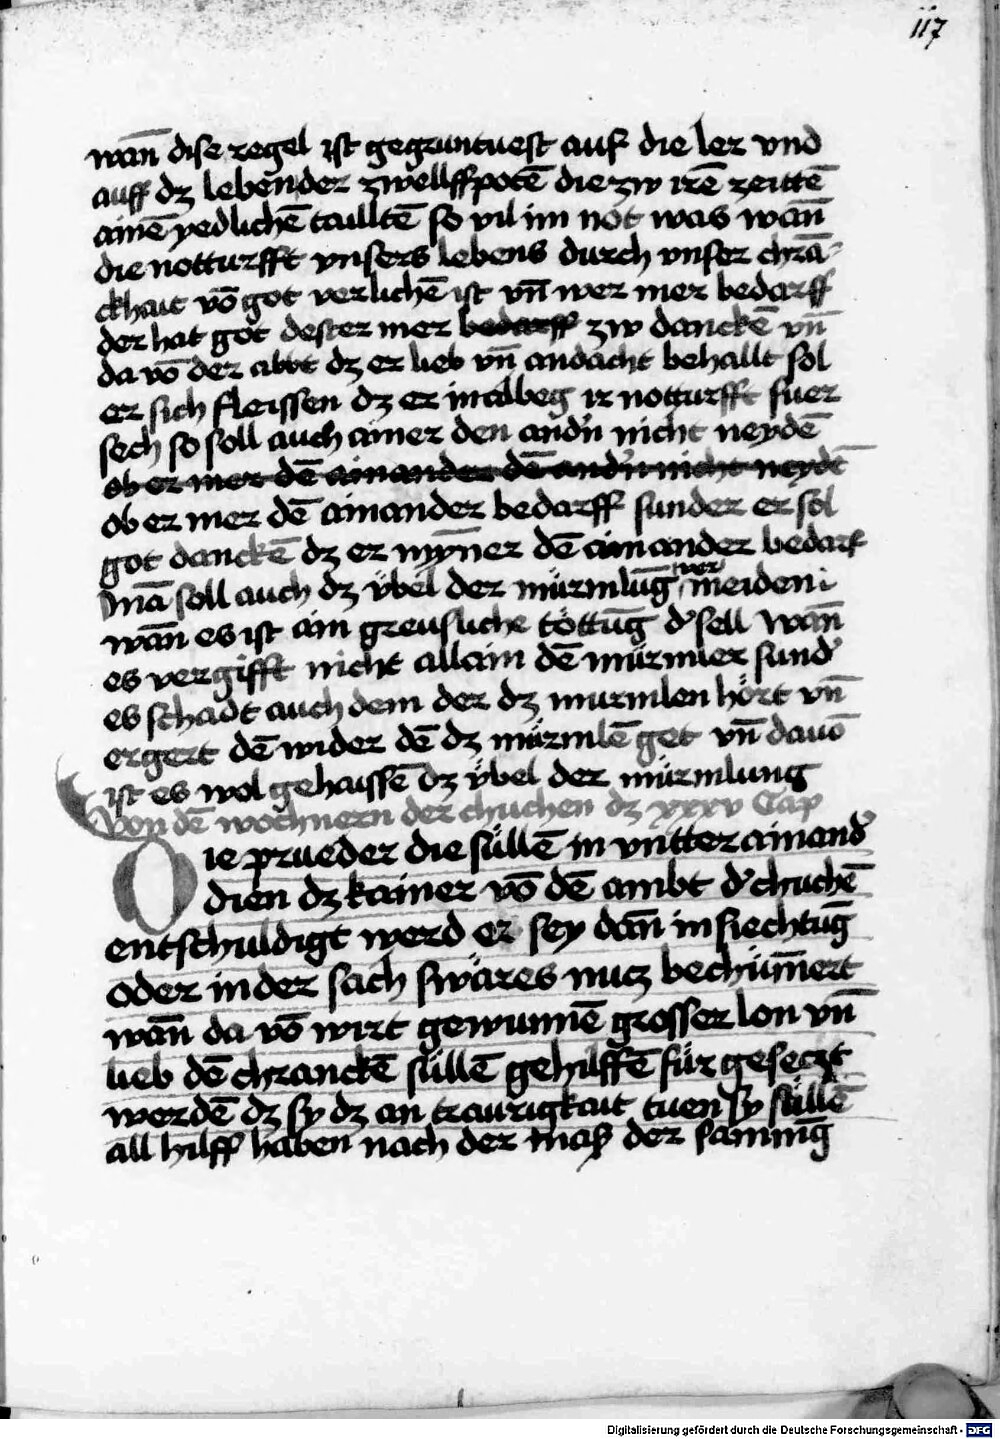 117
wan̄ dise regel ist gegruntuest auf die ler vnd
auff dz lebender zwellffpotē die zw irē zeittē
ainē yedlichē taulltē so vil im not was wan̄
die notturfft vnsers lebens durch vnser chrā-
ckhait vō got verlichē ist vn̄ wer mer bedarff
der hat got dester mer bedarff zw danckē vn̄
da vō der abbt dz er lieb vn̄ andacht behallt sol
er sich fleissen dz er in albeg ir notturfft fuer
sech so soll auch ainer den andn̄ nicht neydē
ob er mer dē ainander dē andn̄ nicht neydē
ob er mer dē ainander bedarff sunder er sol
got danckē dz er myn̄er dē ainander bedarf
Mā soll auch dz v̈bel der mürmlūg ver meiden
wan̄ es ist ain greusliche töttūg d' sell wan̄
es vergifft nicht allain dē mürmler sund'
es schadt auch dem der dz murmlen hört vn̄
ergert dē wider dē dz mürmlē get vn̄ dauō
ist es wol gehaissē dz v̈bel der mürmlung
Von dē wochnern der chuchen dz xxxv Cap
Die prueder die süllē in vntter ainand'
dien dz kainer vō dē ambt d' chuchē
entschuldigt werd er sey dan̄ in siechtūg
oder in der sach swäres nucz bechüm̄ert
wan̄ da vō wirt gewunnē grosser lon vn̄
lieb dē chranckē süllē gehilffē für geseczt
werdē dz sy dz an traurigkait tuen sy süllē
all hilff haben nach der maß der samnūg
Digitalisierung gefördert durch die Deutsche Forschungsgemeinschaft - DFG